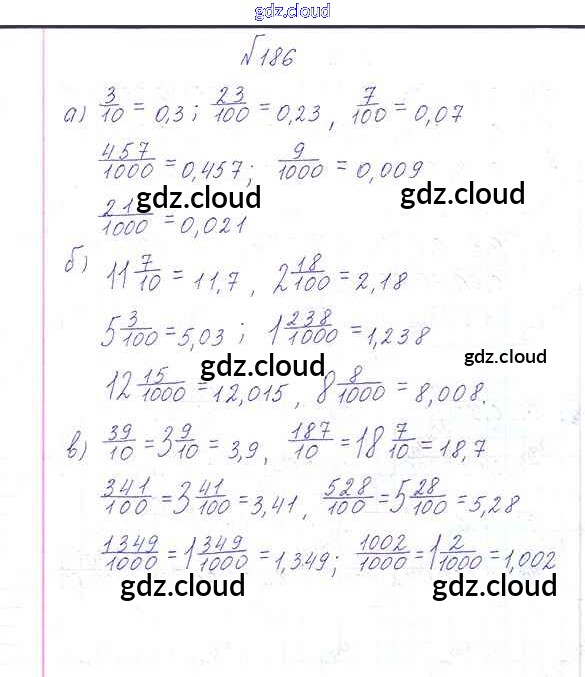 gdz.cloud
№186
а) 3/10 = 0,3; 23/100 = 0,23, 7/100 = 0,07
457/1000 = 0,457; 9/1000 = 0,009
gdz.cloud gdz.cloud
21/1000 = 0,021
б) 11 7/10 = 11,7, 2 18/100 = 2,18
5 3/100 = 5,03; 1 238/1000 = 1,238
gdz.cloud gdz.cloud
12 15/1000 = 12,015, 8 8/1000 = 8,008.
в) 39/10 = 3 9/10 = 3,9, 187/10 = 18 7/10 = 18,7
341/100 = 3 41/100 = 3,41, 528/100 = 5 28/100 = 5,28
1349/1000 = 1 349/1000 = 1,349; 1002/1000 = 1 2/1000 = 1,002
gdz.cloud gdz.cloud